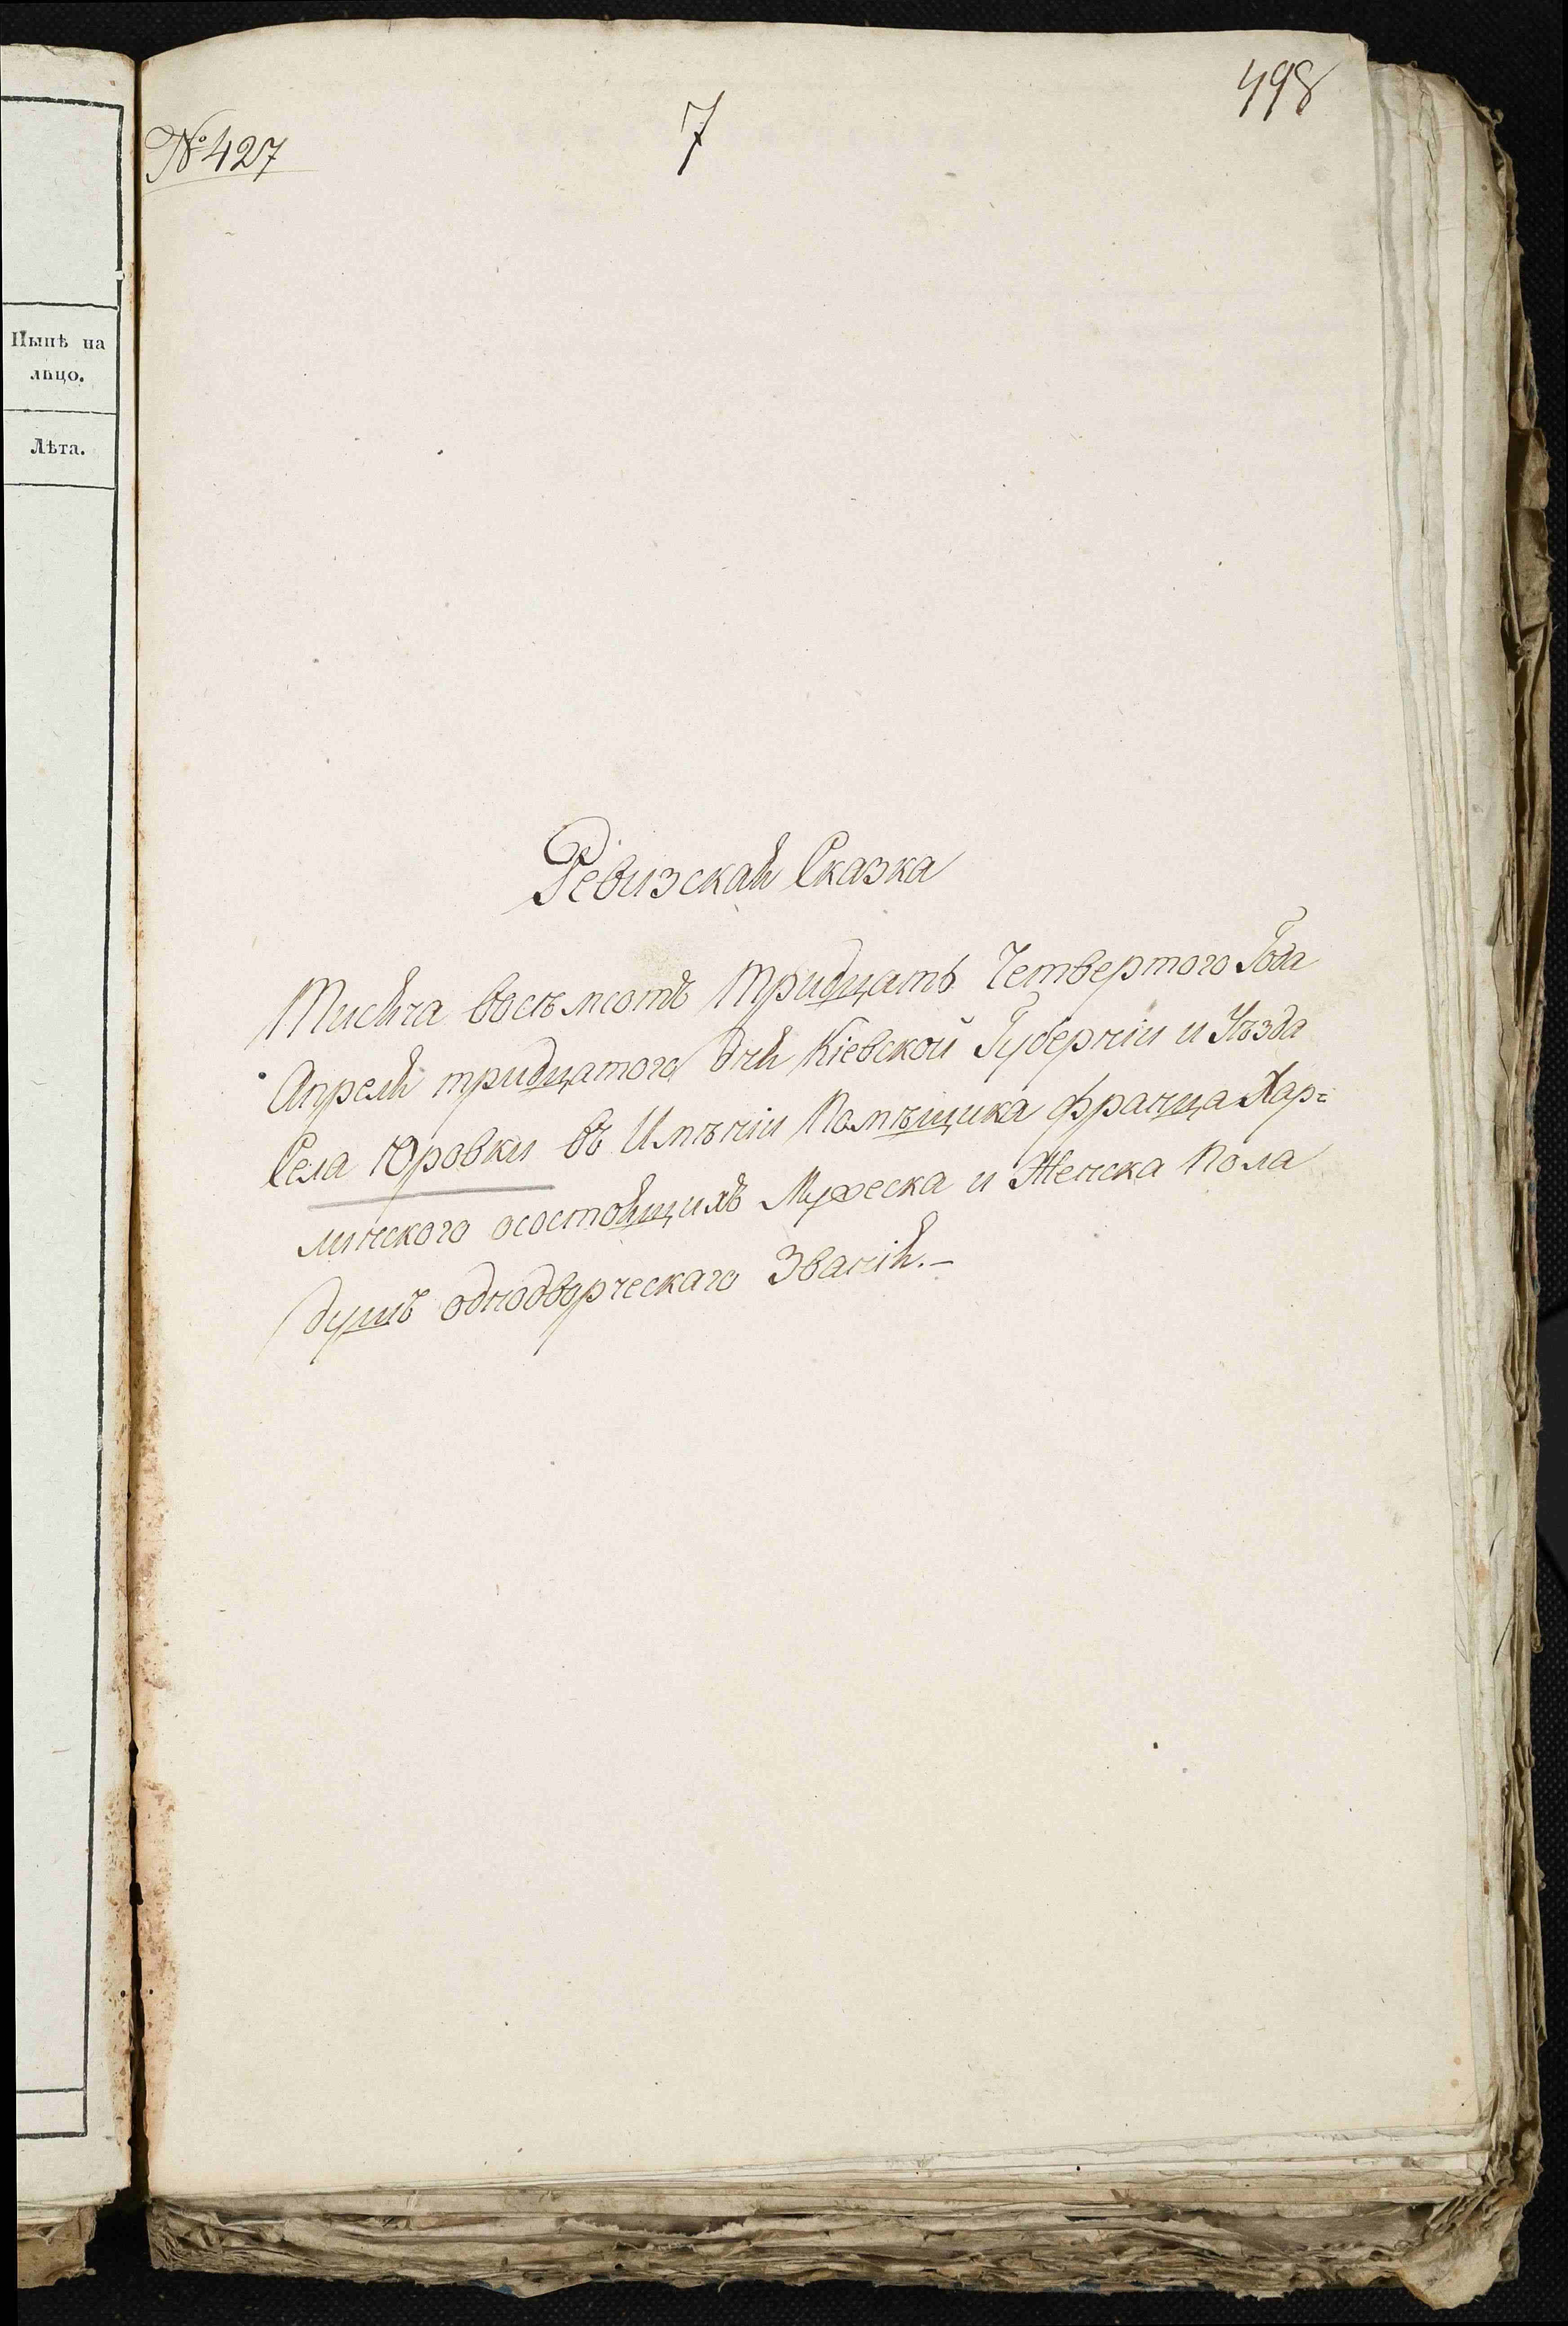 Нынѣ на
лицо.
Лѣта.
№ 427
7
498
Ревизская Сказка
Тисяча восѣмсотъ Тридцать Четвертого Года
Апреля тридцатого дня Кіевской Губерніи и Уѣзда
Села Юровки въ Имѣніи Помѣщика Франца Хар=
линского осостоящихъ Мужеска и Женска Пола
душъ однодворческаго Званія.-